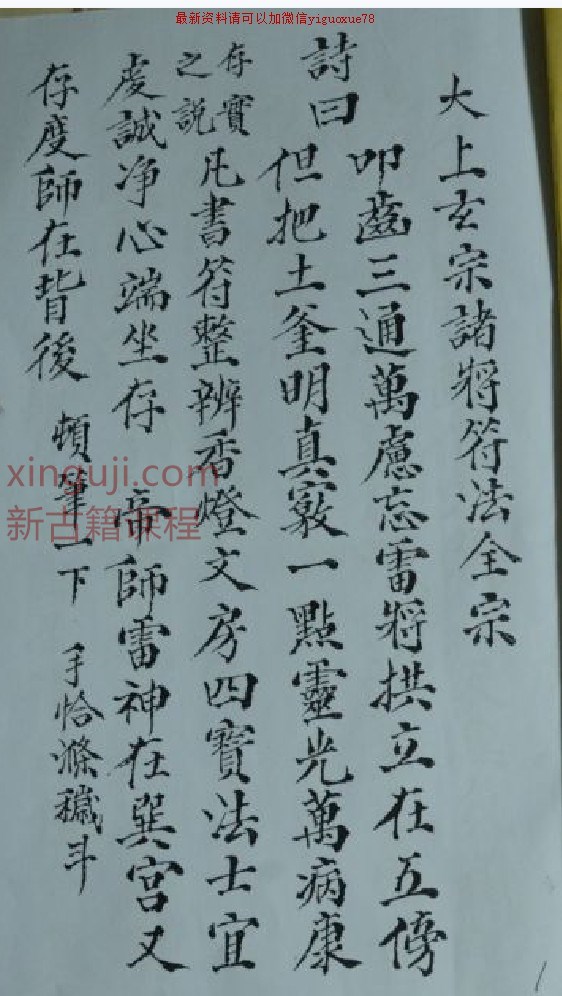 最新资料请可以加微信yiguoxue78
大上玄宗諸將符法全宗
叩齒三通萬慮忘雷將拱立在五傍
詩曰
但把土釜明真竅一點靈光萬病康
存實之說
凡書符整辨香燈文房四寳法士宜
虔誠净心端坐存 帝師雷神在巽宫又
存度師在背後 頓筆一下 手恰滌穢斗
xinguji.com
新古籍课程
1